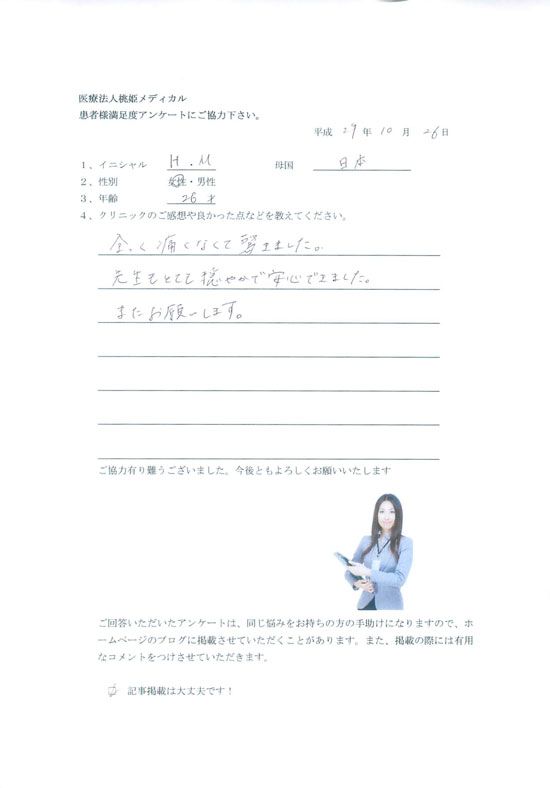 医療法人桃姫メディカル
患者様満足度アンケートにご協力下さい。
平成 29 年 10 月 26 日
1、イニシャル H.M 母国 日本
2、性別 女性・男性
3、年齢 26 才
4、クリニックのご感想や良かった点などを教えてください。
全く痛くなくて驚きました。
先生もとても穏やかで安心できました。
またお願いします。
ご協力有り難うございました。今後ともよろしくお願いいたします
ご回答いただいたアンケートは、同じ悩みをお持ちの方の手助けになりますので、ホ
ームページのブログに掲載させていただくことがあります。また、掲載の際には有用
なコメントをつけさせていただきます。
記事掲載は大丈夫です！